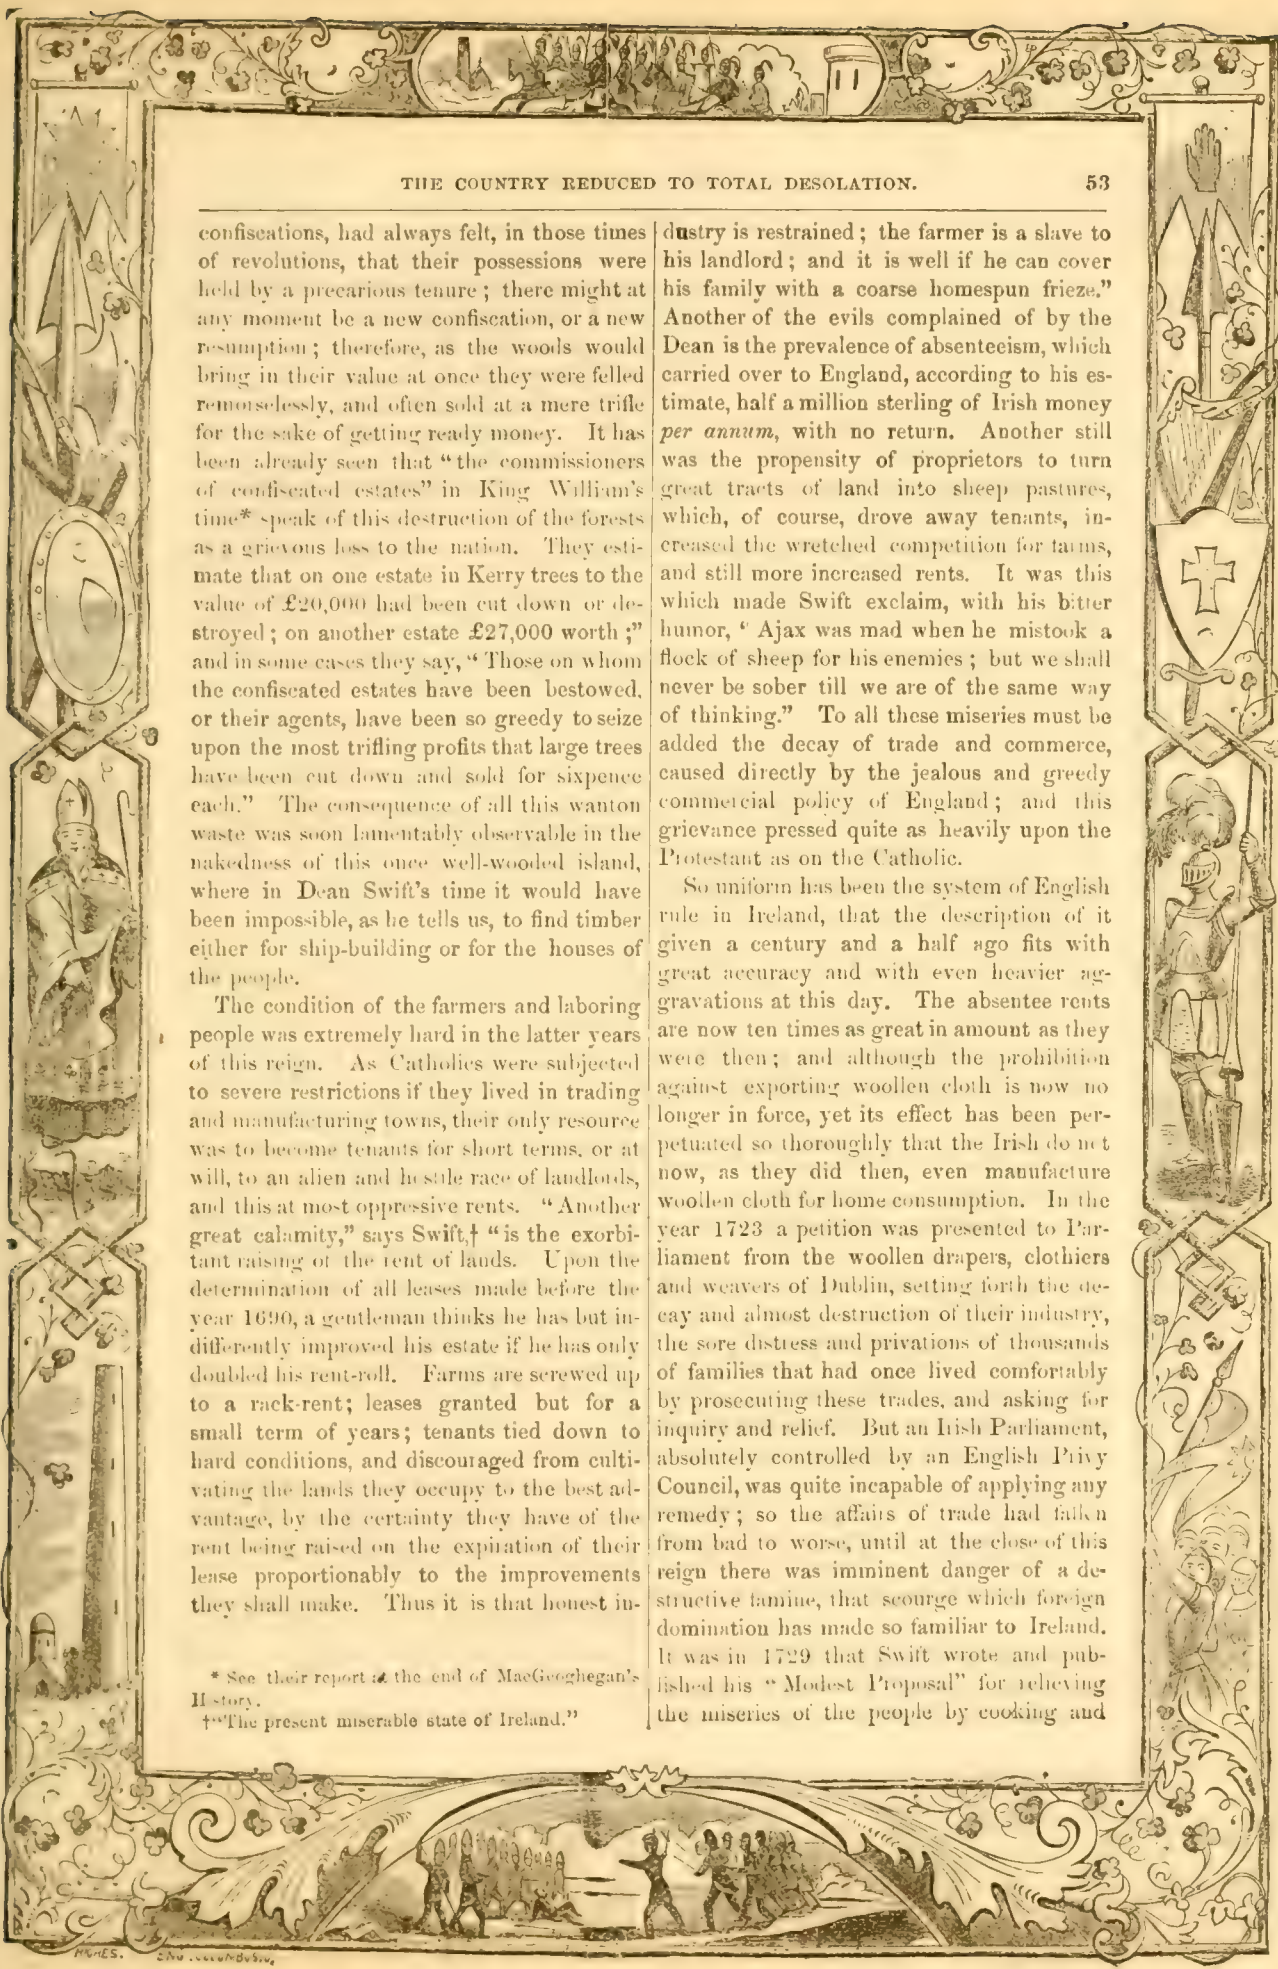 THE COUNTRY REDUCED TO TOTAL DESOLATION. 53
confiscations, had always felt, in those times
of revolutions, that their possessions were
held by a precarious tenure; there might at
any moment be a new confiscation, or a new
resumption; therefore, as the woods would
bring in their value at once they were felled
remorselessly, and often sold at a mere trifle
for the sake of getting ready money. It has
been already seen that "the commissioners
of confiscated estates" in King William's
time* speak of this destruction of the forests
as a grievous loss to the nation. They esti-
mate that on one estate in Kerry trees to the
value of £20,000 had been cut down or de-
stroyed; on another estate £27,000 worth;"
and in some cases they say, "Those on whom
the confiscated estates have been bestowed,
or their agents, have been so greedy to seize
upon the most trifling profits that large trees
have been cut down and sold for sixpence
each." The consequence of all this wanton
waste was soon lamentably observable in the
nakedness of this once well-wooded island,
where in Dean Swift's time it would have
been impossible, as he tells us, to find timber
either for ship-building or for the houses of
the people.
The condition of the farmers and laboring
people was extremely hard in the latter years
of this reign. As Catholics were subjected
to severe restrictions if they lived in trading
and manufacturing towns, their only resource
was to become tenants for short terms, or at
will, to an alien and hostile race of landlords,
and this at most oppressive rents. "Another
great calamity," says Swift,† "is the exorbi-
tant raising of the rent of lands. Upon the
determination of all leases made before the
year 1690, a gentleman thinks he has but in-
differently improved his estate if he has only
doubled his rent-roll. Farms are screwed up
to a rack-rent; leases granted but for a
small term of years; tenants tied down to
hard conditions, and discouraged from culti-
vating the lands they occupy to the best ad-
vantage, by the certainty they have of the
rent being raised on the expiration of their
lease proportionably to the improvements
they shall make. Thus it is that honest in-
* See their report at the end of MacGeoghegan's
History.
†"The present miserable state of Ireland."
dustry is restrained; the farmer is a slave to
his landlord; and it is well if he can cover
his family with a coarse homespun frieze."
Another of the evils complained of by the
Dean is the prevalence of absenteeism, which
carried over to England, according to his es-
timate, half a million sterling of Irish money
per annum, with no return. Another still
was the propensity of proprietors to turn
great tracts of land into sheep pastures,
which, of course, drove away tenants, in-
creased the wretched competition for farms,
and still more increased rents. It was this
which made Swift exclaim, with his bitter
humor, " Ajax was mad when he mistook a
flock of sheep for his enemies; but we shall
never be sober till we are of the same way
of thinking." To all these miseries must be
added the decay of trade and commerce,
caused directly by the jealous and greedy
commercial policy of England; and this
grievance pressed quite as heavily upon the
Protestant as on the Catholic.
So uniform has been the system of English
rule in Ireland, that the description of it
given a century and a half ago fits with
great accuracy and with even heavier ag-
gravations at this day. The absentee rents
are now ten times as great in amount as they
were then; and although the prohibition
against exporting woollen cloth is now no
longer in force, yet its effect has been per-
petuated so thoroughly that the Irish do not
now, as they did then, even manufacture
woollen cloth for home consumption. In the
year 1723 a petition was presented to Par-
liament from the woollen drapers, clothiers
and weavers of Dublin, setting forth the de-
cay and almost destruction of their industry,
the sore distress and privations of thousands
of families that had once lived comfortably
by prosecuting these trades, and asking for
inquiry and relief. But an Irish Parliament,
absolutely controlled by an English Privy
Council, was quite incapable of applying any
remedy; so the affairs of trade had fallen
from bad to worse, until at the close of this
reign there was imminent danger of a de-
structive famine, that scourge which foreign
domination has made so familiar to Ireland.
It was in 1729 that Swift wrote and pub-
lished his "Modest Proposal" for relieving
the miseries of the people by cooking and